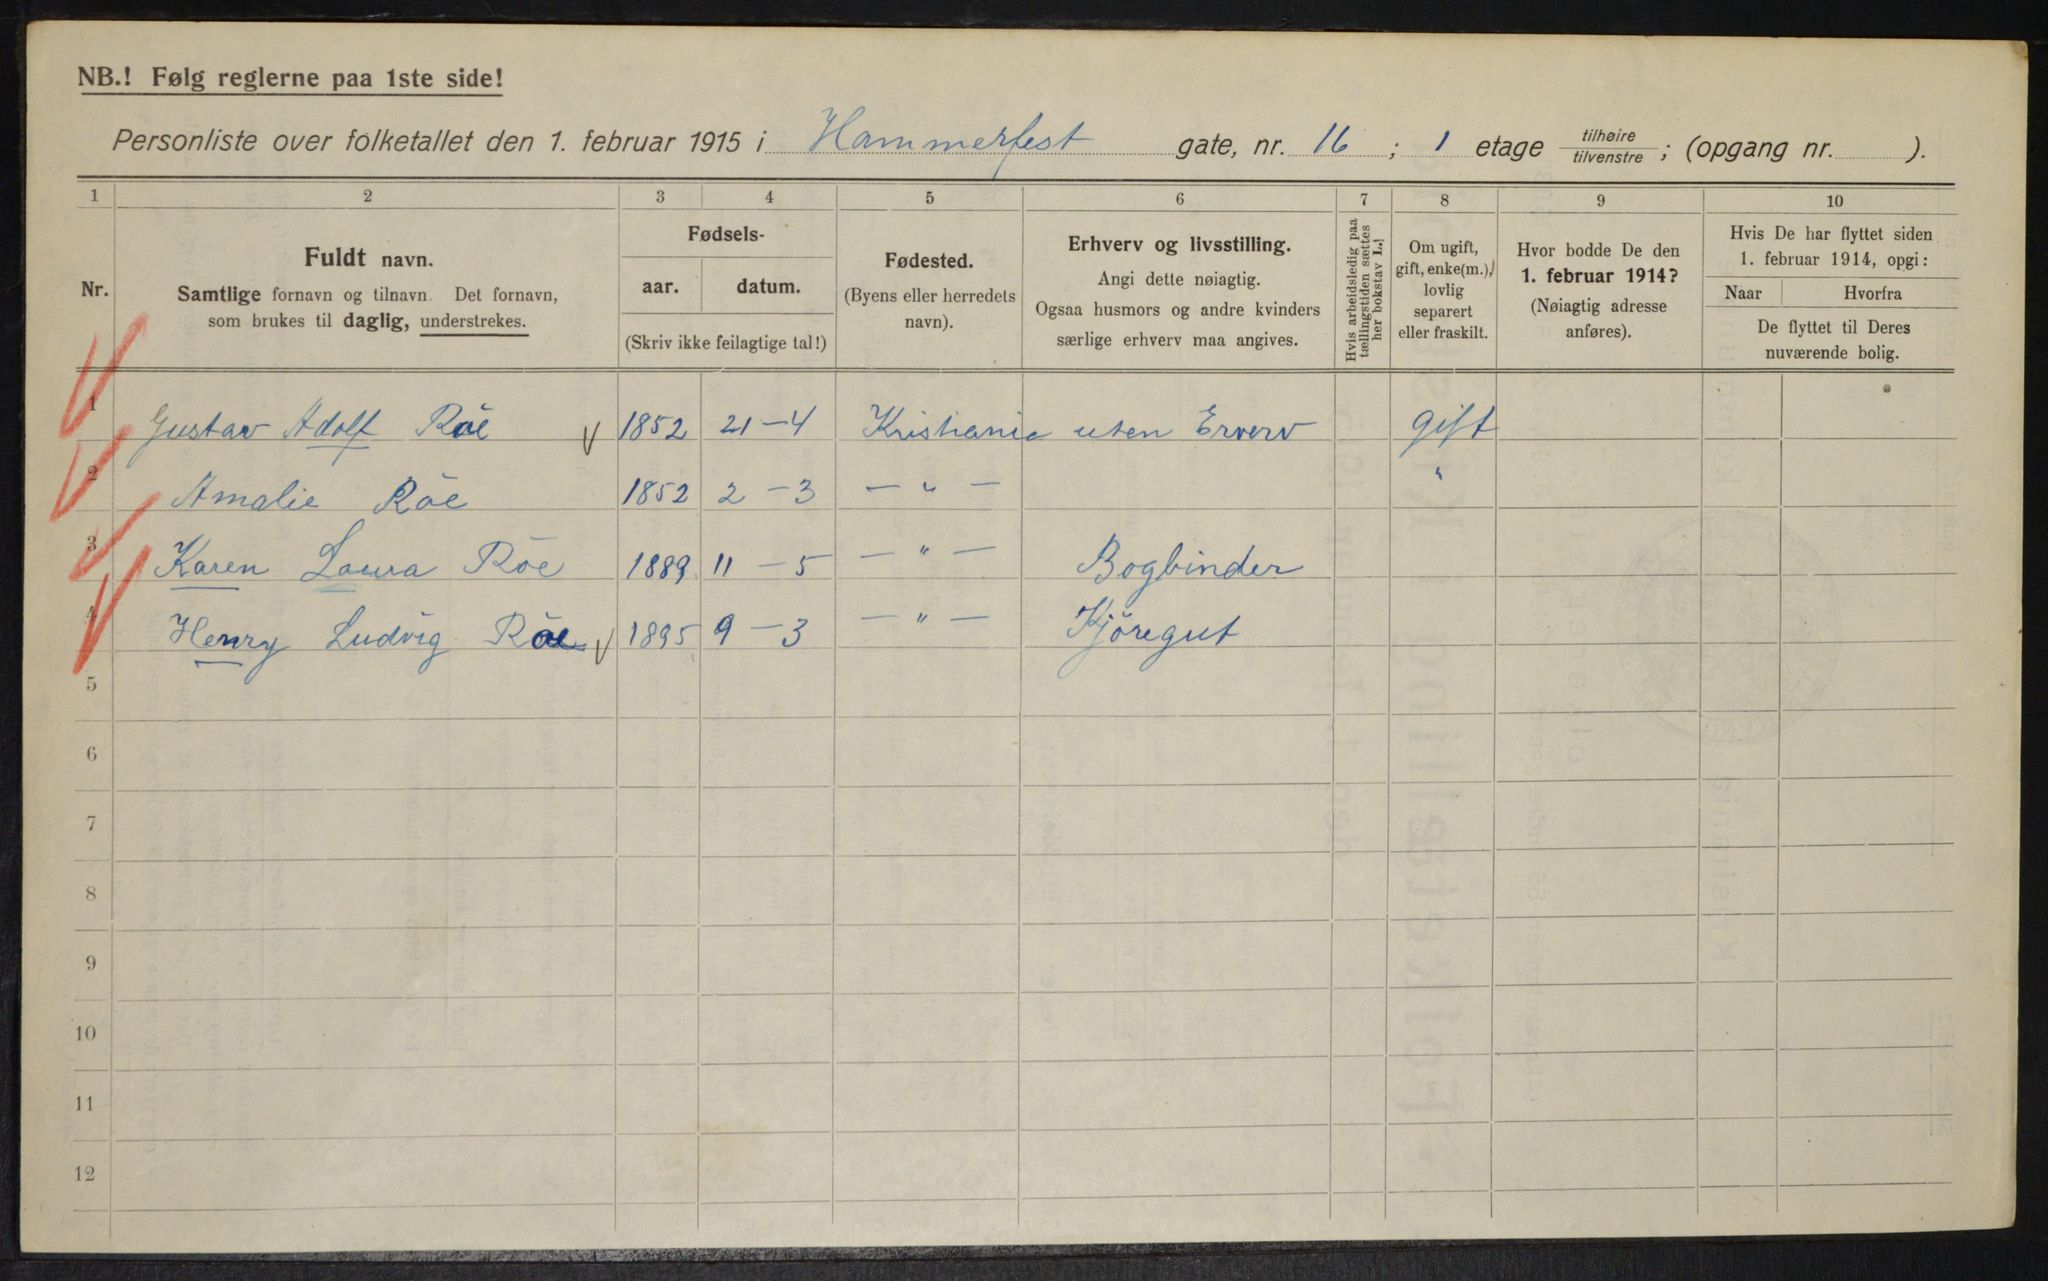 NB.! Følg reglerne paa 1ste side!
Personliste over folketallet den 1. februar 1915 i Hammerfest gate, nr. 16 ; 1 etage tilhøire/tilvenstre ; (opgang nr. ).
1 2 3 4 5 6 7 8 9 10
Nr.
Fuldt navn.
Samtlige fornavn og tilnavn. Det fornavn,
som brukes til daglig, understrekes.
Fødsels-
aar. datum.
(Skriv ikke feilagtige tal!)
Fødested.
(Byens eller herredets
navn).
Erhverv og livsstilling.
Angi dette nøiagtig.
Ogsaa husmors og andre kvinders
særlige erhverv maa angives.
Hvis arbeidsledig paa
tællingstiden sættes
her bokstav L.)
Om ugift,
gift, enke(m.),
lovlig
separert
eller fraskilt.
Hvor bodde De den
1. februar 1914?
(Nøiagtig adresse
anføres).
Hvis De har flyttet siden
1. februar 1914, opgi:
Naar Hvorfra
De flyttet til Deres
nuværende bolig.
1 Gustav Adolf Röe 1852 21 – 4 Kristiania uten Erverv gift
2 Amalie Röe 1852 2 – 3 – " – "
3 Karen Laura Röe 1889 11 – 5 – " – Bogbinder
4 Henry Ludvig Röe 1895 9 – 3 – " – Kjöregut
5
6
7
8
9
10
11
12